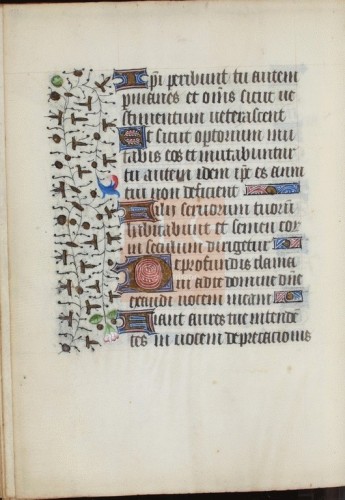 Ipsi peribunt tu autem
permanes et omnes sicut ve
stimentum veterascent
Et sicut opertorium mu
tabis eos et mutabuntur
tu autem idem ipse es et anni
tui non deficient
Filii servorum tuorum
habitabunt et semen eor
in seculum dirigetur
De profundis clama
vi ad te domine dne
exaudi vocem meam
Fiant aures tue intende
tes in vocem deprecationis